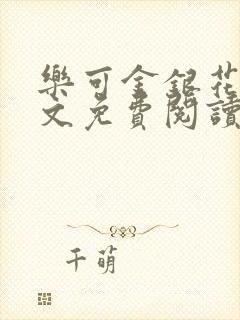 樂可金銀花
文免費閱讀
千萌